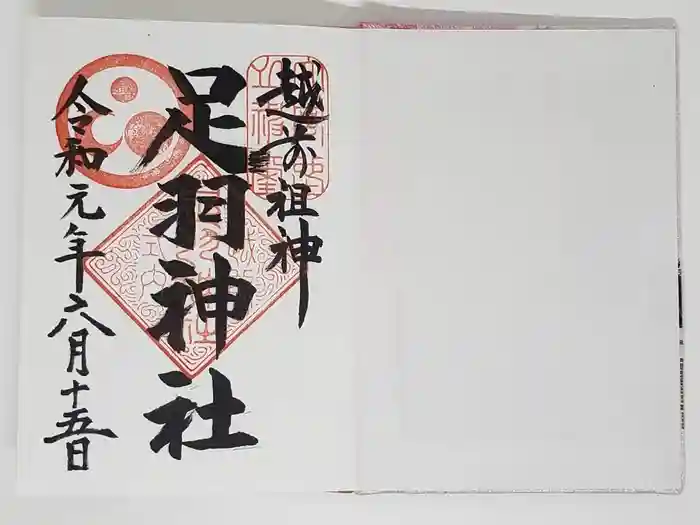 越前祖神
足羽神社
令和元年六月十五日